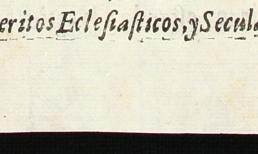 eritos Eclesiasticos, y Secula